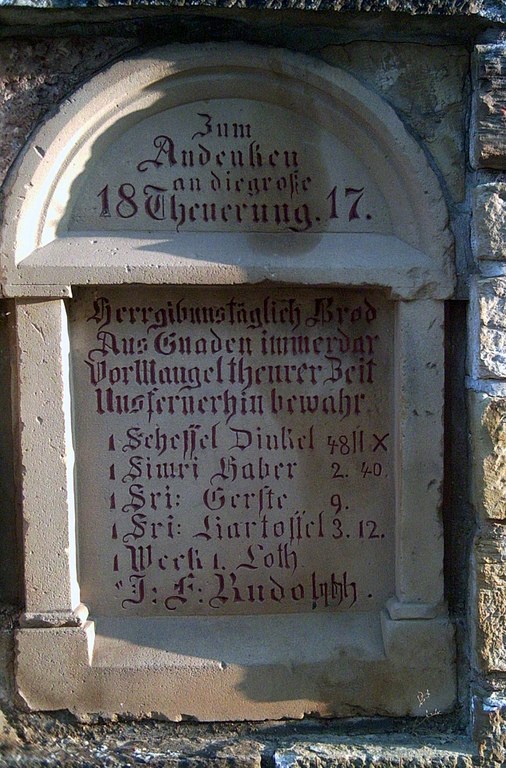 Zum
Andenken
an diegroße
18 Theuerung. 17.
Herrgibunstäglich Brod
Aus Gnaden immerdar
Vor Mangel theurer Zeit
Uns fernerhin bewahr.
1 Scheffel Dinkel 48 fl X
1 Simri Haber 2. 40.
1 Sri: Gerste 9.
1 Sri: Kartoffel 3. 12.
1 Weck 1. Loth
J: F: Rudolph.